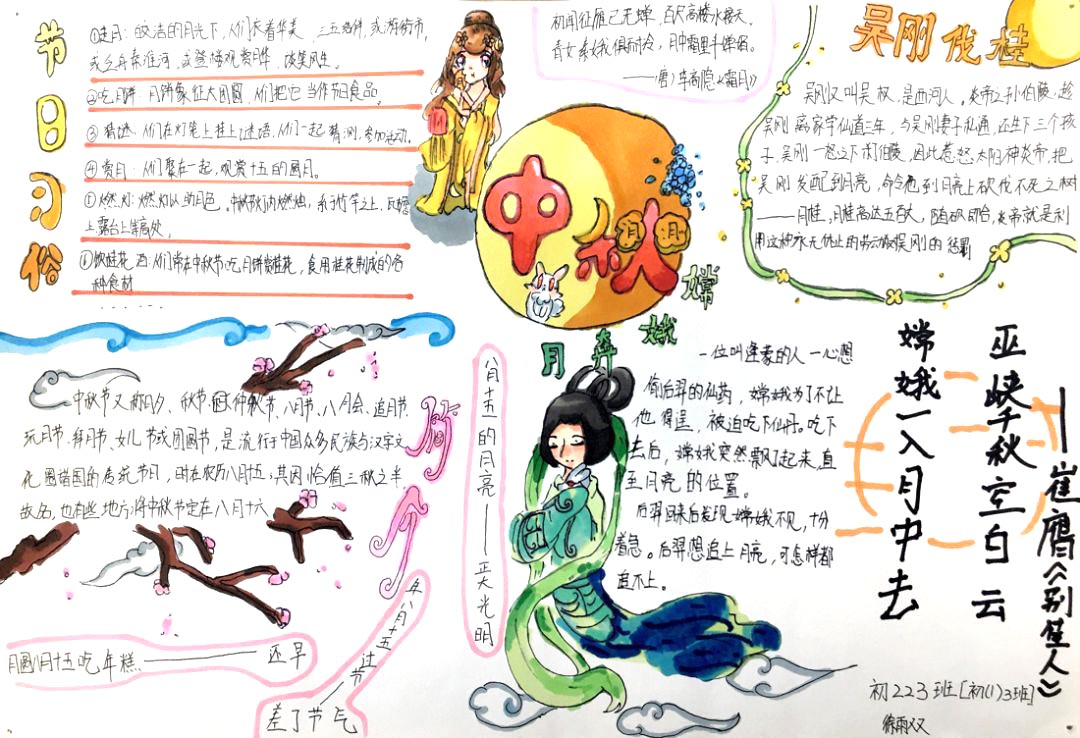 节日习俗
①走月：皎洁的月光下，人们衣着华美，三五结伴，或游街市，
或泛舟秦淮河，或登楼观赏月华，谈笑风生。
②吃月饼 月饼象征大团圆，人们把它当作节日食品。
③猜谜：人们在灯笼上挂上谜语，人们一起猜测，参加活动。
④赏月：人们聚在一起，观赏十五的圆月。
①燃灯：燃灯以助月色。中秋夜灯内燃烛，系于竹竿之上，瓦檐
上露台上等高处。
①饮桂花酒：人们常在中秋节吃月饼赏桂花，食用桂花制成的各
种食材
......
初闻征雁已无蝉，百尺高楼水接天。
青女素娥俱耐冷，月中霜里斗婵娟。
——（唐）李商隐《霜月》
中秋
吴刚伐桂
吴刚又叫吴权，是西河人。炎帝之孙伯陵，趁
吴刚离家学仙道三年，与吴刚妻子私通，还生下三个孩
子，吴刚一怒之下杀伯陵，因此惹怒太阳神炎帝，把
吴刚发配到月亮，命令他到月亮上砍伐不死之树
——月桂，月桂高达五百丈，随砍即合，炎帝就是利
用这种永无休止的劳动做吴刚的惩罚
嫦娥奔月
一位叫逢蒙的人一心想
偷后羿的仙药，嫦娥为了不让
他得逞，被迫吃下仙丹。吃下
去后，嫦娥突然飘了起来，直
至月亮的位置。
后羿回来后发现嫦娥不见，十分
着急。后羿想追上月亮，可怎样都
追不上。
中秋节又称月夕、秋节、仲秋节、八月节、八月会、追月节、
玩月节、拜月节、女儿节或团圆节，是流行于中国众多民族与汉字文
化圈诸国的传统节日，时在农历八月十五；其因恰值三秋之半，
故名，也有些地方将中秋节定在八月十六
简介
八月十五的月亮——正大光明
月圆八月十五吃年糕——还早
年八月十五过节——
差了节气
巫峡千秋空白云
嫦娥一入月中去
——崔膺《别佳人》
初223班［初(1)3班］
徐雨双